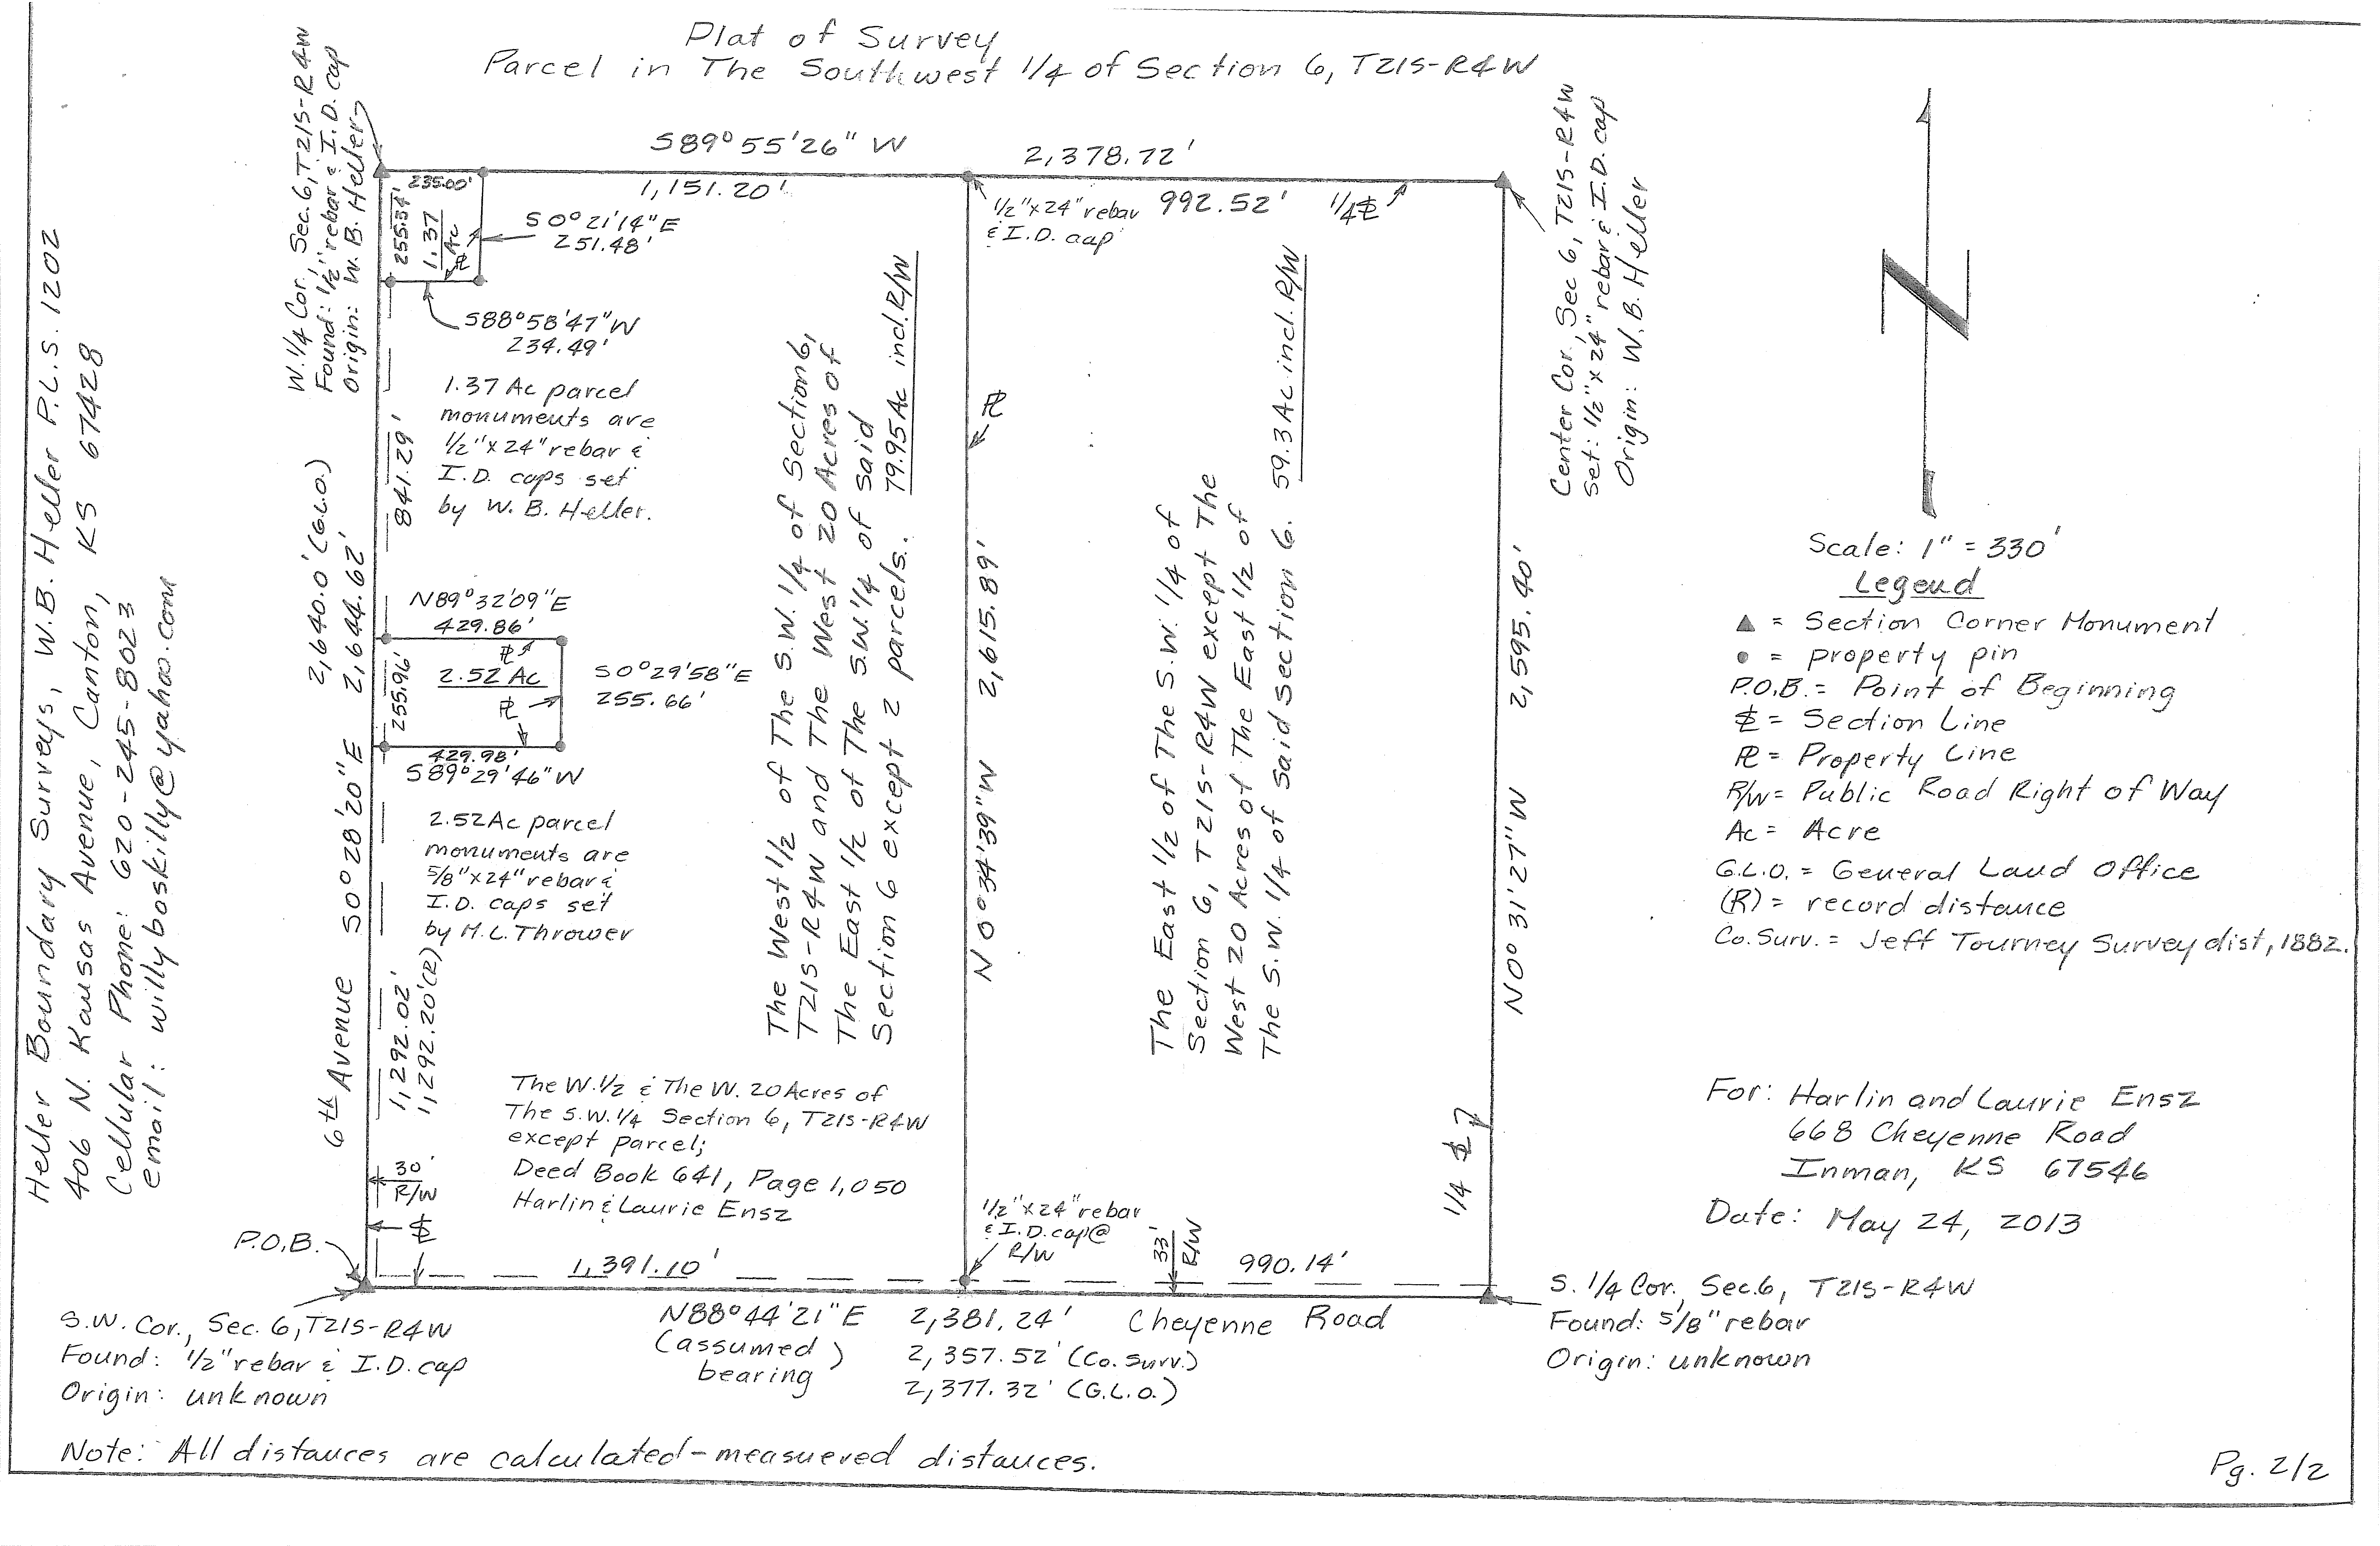 Plat of Survey
Parcel in The Southwest 1/4 of Section 6, T21S-R4W
Heller Boundary Surveys, W.B. Heller P.L.S. 1202
406 N. Kansas Avenue, Canton, KS 67428
Cellular Phone: 620-245-8023
email: willyboskilly@yahoo.com
W. 1/4 Cor., Sec. 6, T21S-R4W
Found: 1/2" rebar & I.D. cap
Origin: W. B. Heller
S89°55'26" W 2,378.72'
235.00'
1,151.20'
992.52'
1/4 SL
1/2"x24" rebar
& I.D. cap
255.34'
1.37
Ac
PL
S0°21'14"E
251.48'
S88°58'47"W
234.49'
1.37 Ac parcel
monuments are
1/2"x24" rebar &
I.D. caps set
by W. B. Heller.
841.29'
2,640.0' (G.L.O.)
6th Avenue S0°28'20"E 2,644.62'
N89°32'09"E
429.86'
PL
255.96'
2.52 Ac
PL
S0°29'58"E
255.66'
429.98'
S89°29'46"W
2.52 Ac parcel
monuments are
5/8"x24" rebar &
I.D. caps set
by M.L. Thrower
1,292.02'
1,292.20'(R)
30'
R/W
SL
P.O.B.
The West 1/2 of The S.W. 1/4 of Section 6,
T21S-R4W and The West 20 Acres of
The East 1/2 of The S.W. 1/4 of said
Section 6 except 2 parcels. 79.95 Ac incl. R/W
PL
N0°34'39"W 2,615.89'
The East 1/2 of The S.W. 1/4 of
Section 6, T21S-R4W except The
West 20 Acres of The East 1/2 of
The S.W. 1/4 of said section 6. 59.3 Ac incl. R/W
N0°31'27"W 2,595.40'
1/4 SL
Center Cor., Sec 6, T21S-R4W
Set: 1/2"x24" rebar & I.D. cap
Origin: W.B. Heller
The W. 1/2 & The W. 20 Acres of
The S.W. 1/4 Section 6, T21S-R4W
except parcel;
Deed Book 641, Page 1,050
Harlin & Laurie Ensz
1/2"x24" rebar
& I.D. cap@
R/W
33'
R/W
1,391.10'
990.14'
N88°44'21"E 2,381.24' Cheyenne Road
(assumed bearing)
2,357.52' (Co. Surv.)
2,377.32' (G.L.O.)
S.W. Cor., Sec. 6, T21S-R4W
Found: 1/2" rebar & I.D. cap
Origin: unknown
S. 1/4 Cor., Sec. 6, T21S-R4W
Found: 5/8" rebar
Origin: unknown
N
Scale: 1" = 330'
Legend
▲ = Section Corner Monument
● = property pin
P.O.B. = Point of Beginning
SL = Section Line
PL = Property Line
R/W = Public Road Right of Way
Ac = Acre
G.L.O. = General Land Office
(R) = record distance
Co. Surv. = Jeff Tourney Survey dist, 1882.
For: Harlin and Laurie Ensz
668 Cheyenne Road
Inman, KS 67546
Date: May 24, 2013
Note: All distances are calculated-measuered distances.
Pg. 2/2